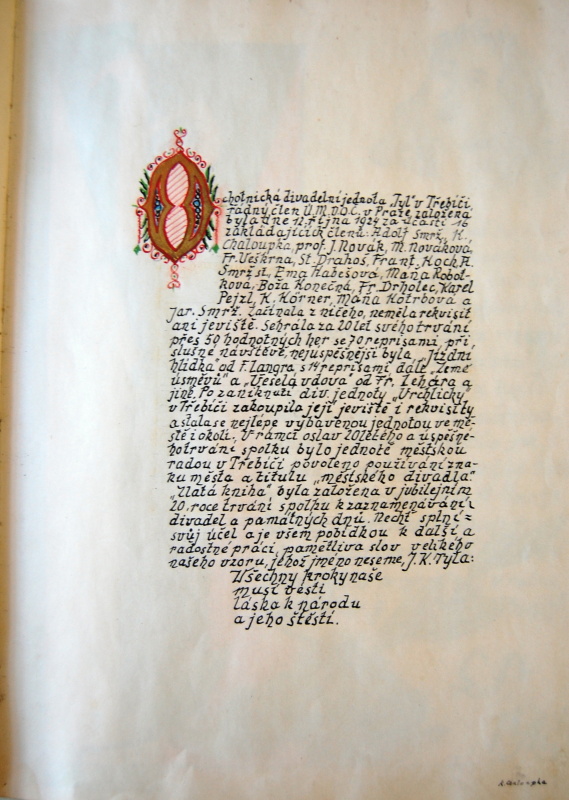 Ochotnická divadelní jednota „Tyl" v Třebíči,
řádný člen Ú.M.D.O.C. v Praze, založena
byla dne 12. října 1924 za účasti 16
zakládajících členů: Adolf Smrž, K.
Chaloupka, prof. J. Novák, M. Nováková,
Fr. Veškrna, St. Drahoš, Frant. Koch, A.
Smrž st., Ema Habešová, Máňa Robot-
ková, Boža Konečná, Fr. Drholec, Karel
Pejzl, K. Körner, Máňa Kotrbová a
Jar. Smrž. Začínala z ničeho, neměla rekvisit
ani jeviště. Sehrála za 20 let svého trvání
přes 50 hodnotných her se 70 reprisami, při
slušné návštěvě, nejúspěšnější byla „Jízdní
hlídka" od F. Langra s 14 reprisami dále „Země
úsměvů" a „Veselá vdova" od Fr. Lehára a
jiné. Po zaniknutí div. jednoty „Vrchlický"
v Třebíči zakoupila její jeviště i rekvisity
a stala se nejlépe vybavenou jednotou ve mě-
stě i okolí. V rámci oslav 20letého a úspěšné-
ho trvání spolku bylo jednotě městskou
radou v Třebíči povoleno používání zna-
ku města a titulu „městského divadla".
„Zlatá kniha" byla založena v jubilejním
20. roce trvání spolku k zaznamenávání
divadel a památných dnů. Nechť splní =
svůj účel a je všem pobídkou k další a
radostné práci, pamětliva slov velikého
našeho vzoru, jehož jméno neseme, J. K. Tyla:
Všechny kroky naše
musí vésti
láska k národu
a jeho štěstí.
K. Chaloupka